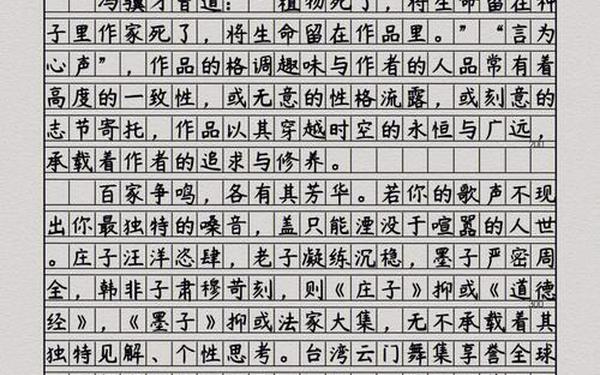 冯骥才曾道：“植物死了，将生命留在种
子里作家死了，将生命留在作品里。”“言为
心声”，作品的格调趣味与作者的人品常有着
高度的一致性，或无意的性格流露，或刻意的
志节寄托，作品以其穿越时空的永恒与广远，
200
承载着作者的追求与修养。
百家争鸣，各有其芳华。若你的歌声不现
出你最独特的嗓音，盖只能湮没于喧嚣的人世
。庄子汪洋恣肆，老子凝练沉稳，墨子严密周
全，韩非子肃穆苛刻，则《庄子》抑或《道德
300
经》，《墨子》抑或法家大集，无不承载着其
独特见解、个性思考。台湾云门舞集享誉全球